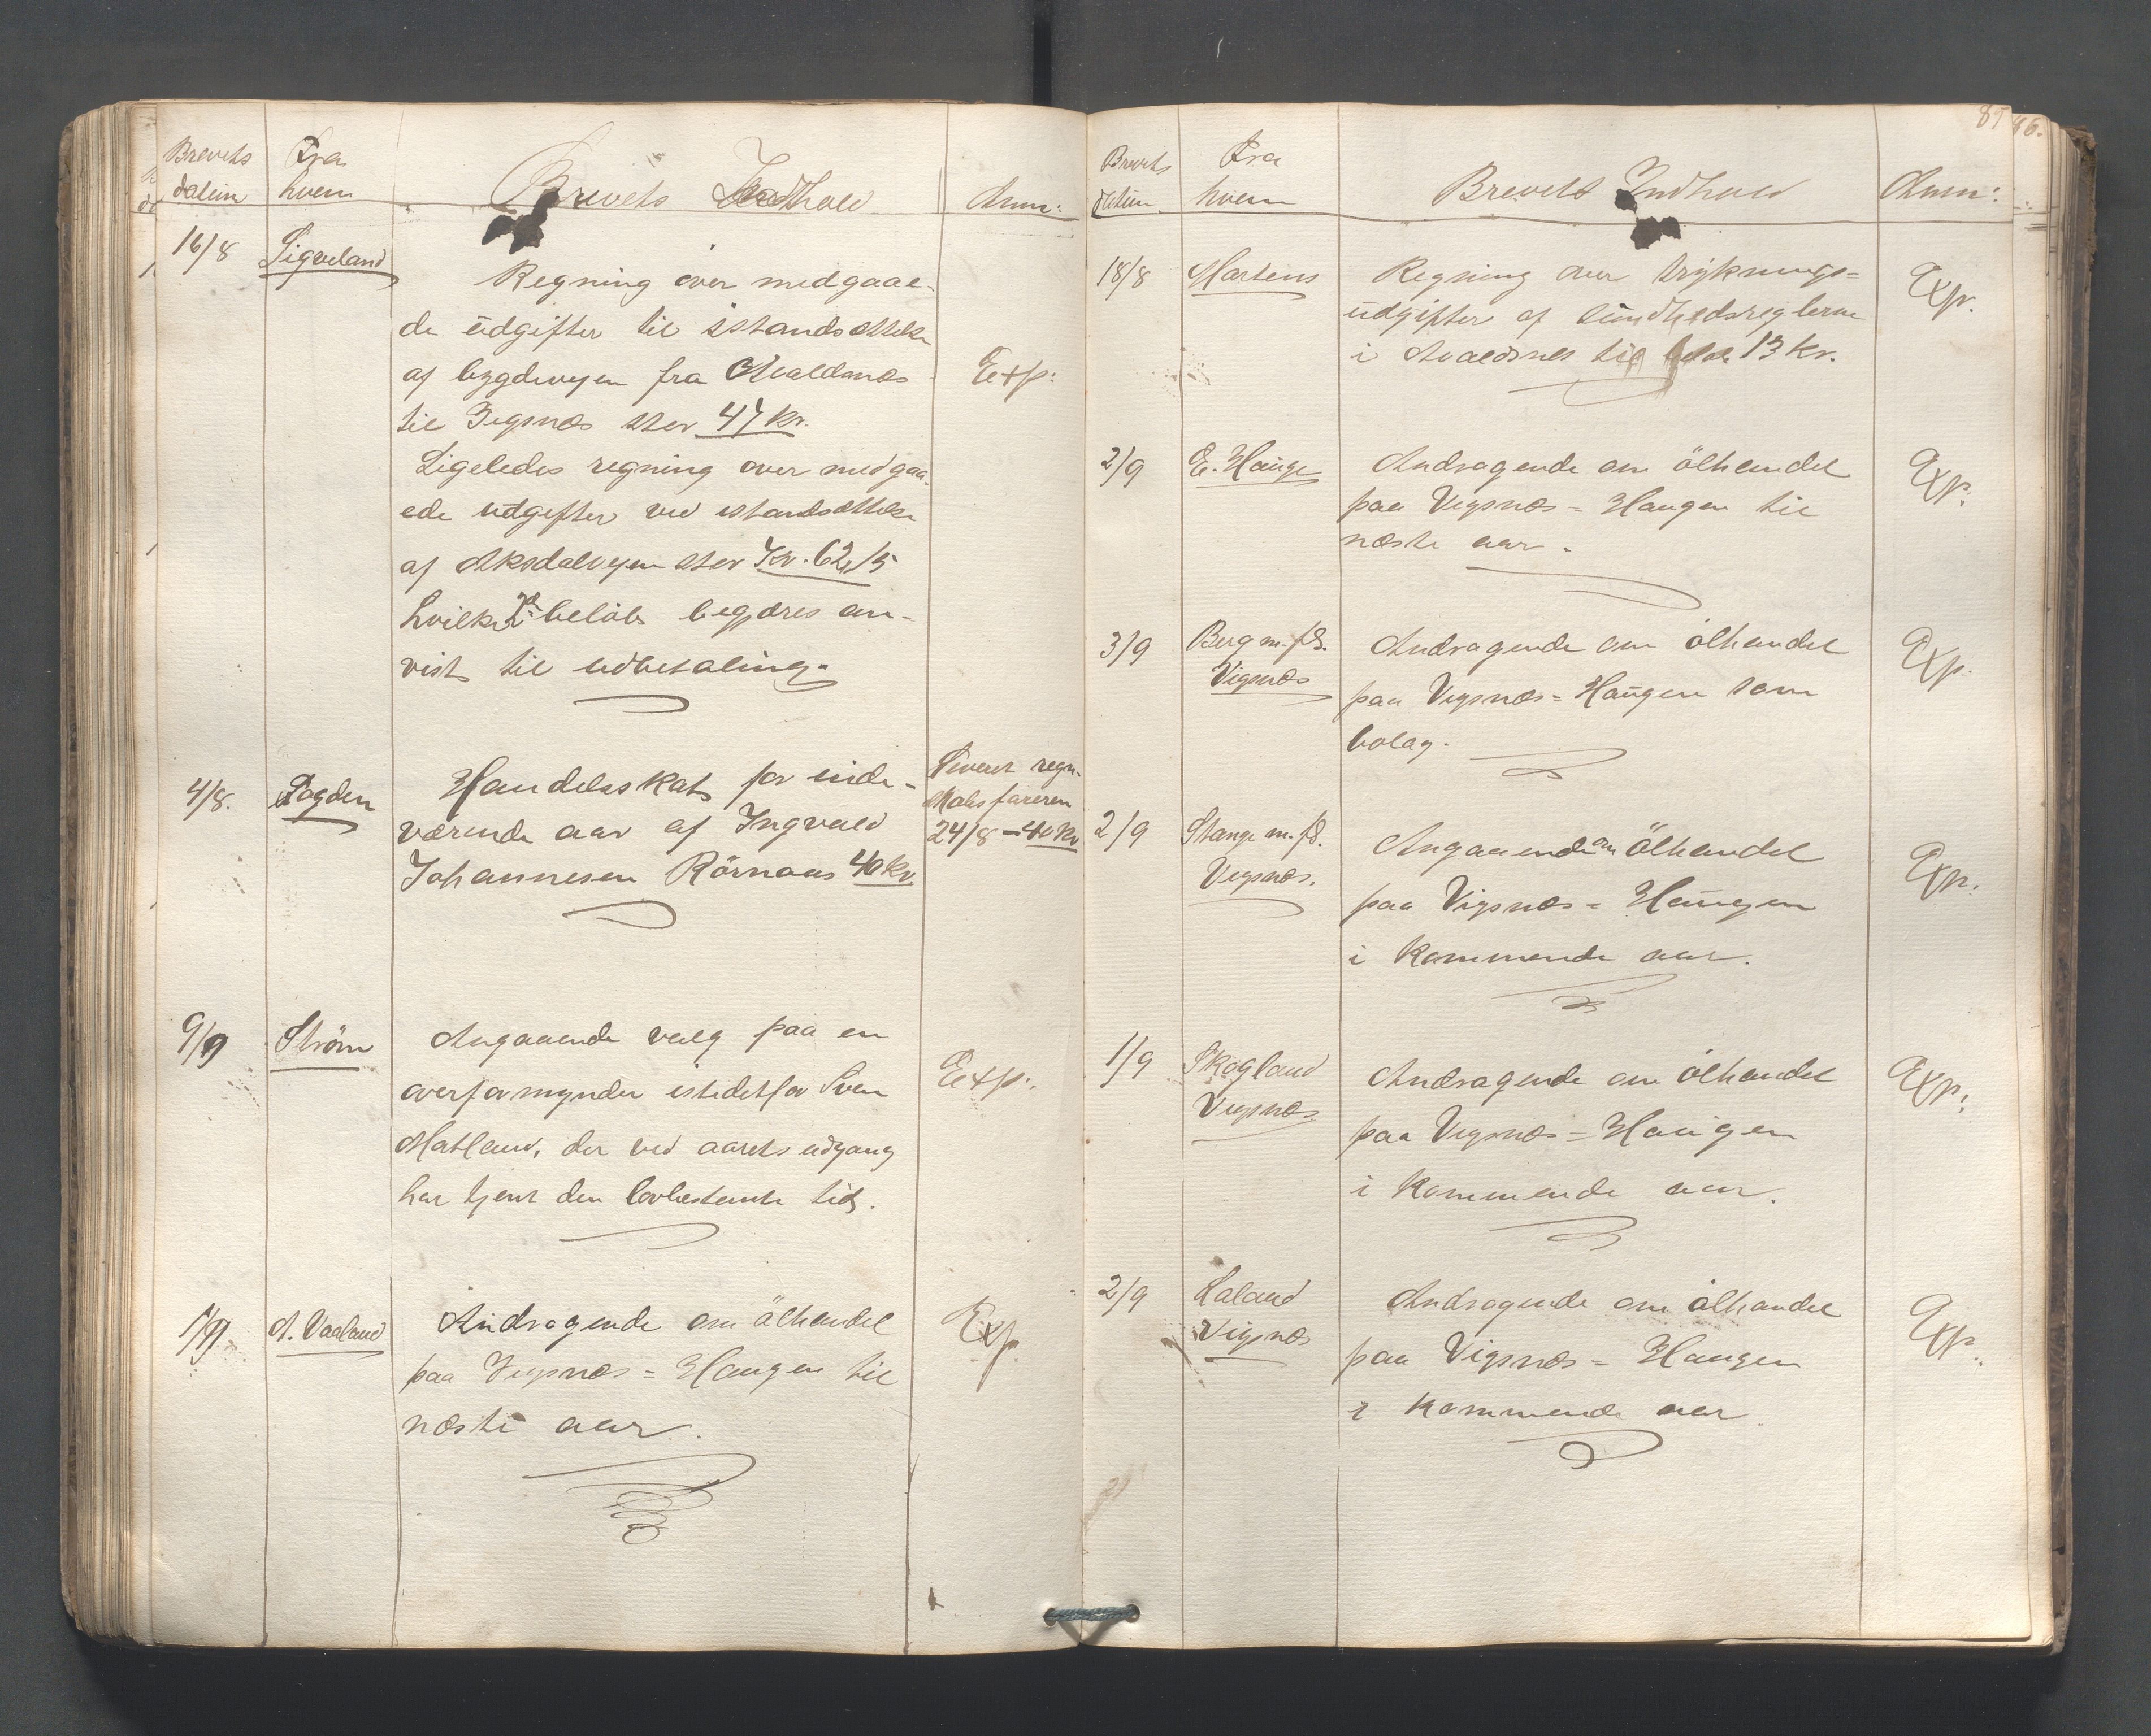 Brevets datum
Fra hvem
Brevets Indhold
Anm:
16/8
Sigveland
Regning over medgaae-
de udgifter til istandsættelse
af bygdeveien fra Avaldsnæs
til Vigsnæs stor 47 kr.
Ligeledes regning over medgaa-
ede udgifter ved istandsættelse
af Aksdalveien stor Kr. 62,15
hvilke 2de beløb begjæres an-
vist til udbetaling.
Exp:
4/8.
Fogden
Handelsskat for inde-
værende aar af Ingvald
Johannesen Rörnaas 40 kr
Leveret regn-
skabsføreren
24/8 – 40 kr
9/9
Ström
Angaaende valg paa en
overformynder istedetfor Sven
Matland, der ved aarets udgang
har tjent den lovbestemte tid.
Exp:
1/9
A. Vaaland
Andragende om ölhandel
paa Vigsnæs = Haugen til
næste aar.
Exp.
85 86.
Brevets datum
Fra hvem
Brevets Indhold
Anm:
18/8
Martens
Regning over tryknings=
udgifter af sundhedsreglerne
i Avaldsnes til 13 kr.
Exp.
2/9
E. Hauge
Andragende om ölhandel
paa Vigsnæs = Haugen til
næste aar.
Exp:
3/9
Berg m. fl.
Vigsnæs
Andragende om ölhandel
paa Vigsnæs = Haugen som
bolag.
Exp.
2/9
Stange m. fl.
Vigsnæs.
Angaaende om ölhandel
paa Vigsnæs = Haugen
i kommende aar.
Exp.
1/9
Skogland
Vigsnæs
Andragende om ölhandel
paa Vigsnæs = Haugen
i kommende aar.
Exp:
2/9
Haland
Vigsnæs
Andragende om ölhandel
paa Vigsnæs = Haugen
i kommende aar.
Exp.